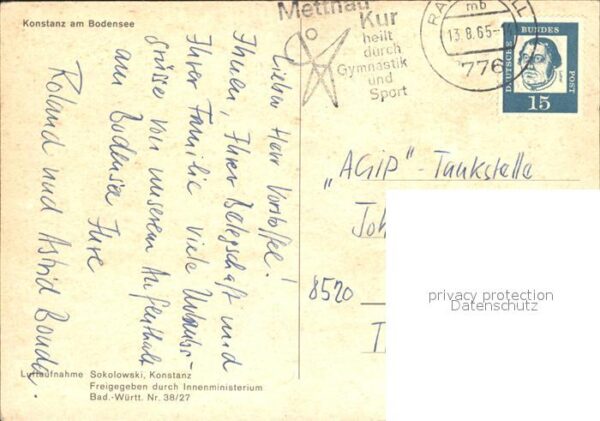 Konstanz am Bodensee
Mettnau
Kur
heilt
durch
Gymnastik
und
Sport
mb
13.8.65-
776
DEUTSCHE BUNDESPOST
15
Lieber Herr
Ihnen, Ihrer Belegschaft und
Ihrer Familie viele Urlaubs-
grüße von unserem Aufenthalt
am Bodensee Ihre
Roland und Astrid
"AGIP"-Tankstelle
8520
privacy protection
Datenschutz
Luftaufnahme Sokolowski, Konstanz
Freigegeben durch Innenministerium
Bad.-Württ. Nr. 38/27